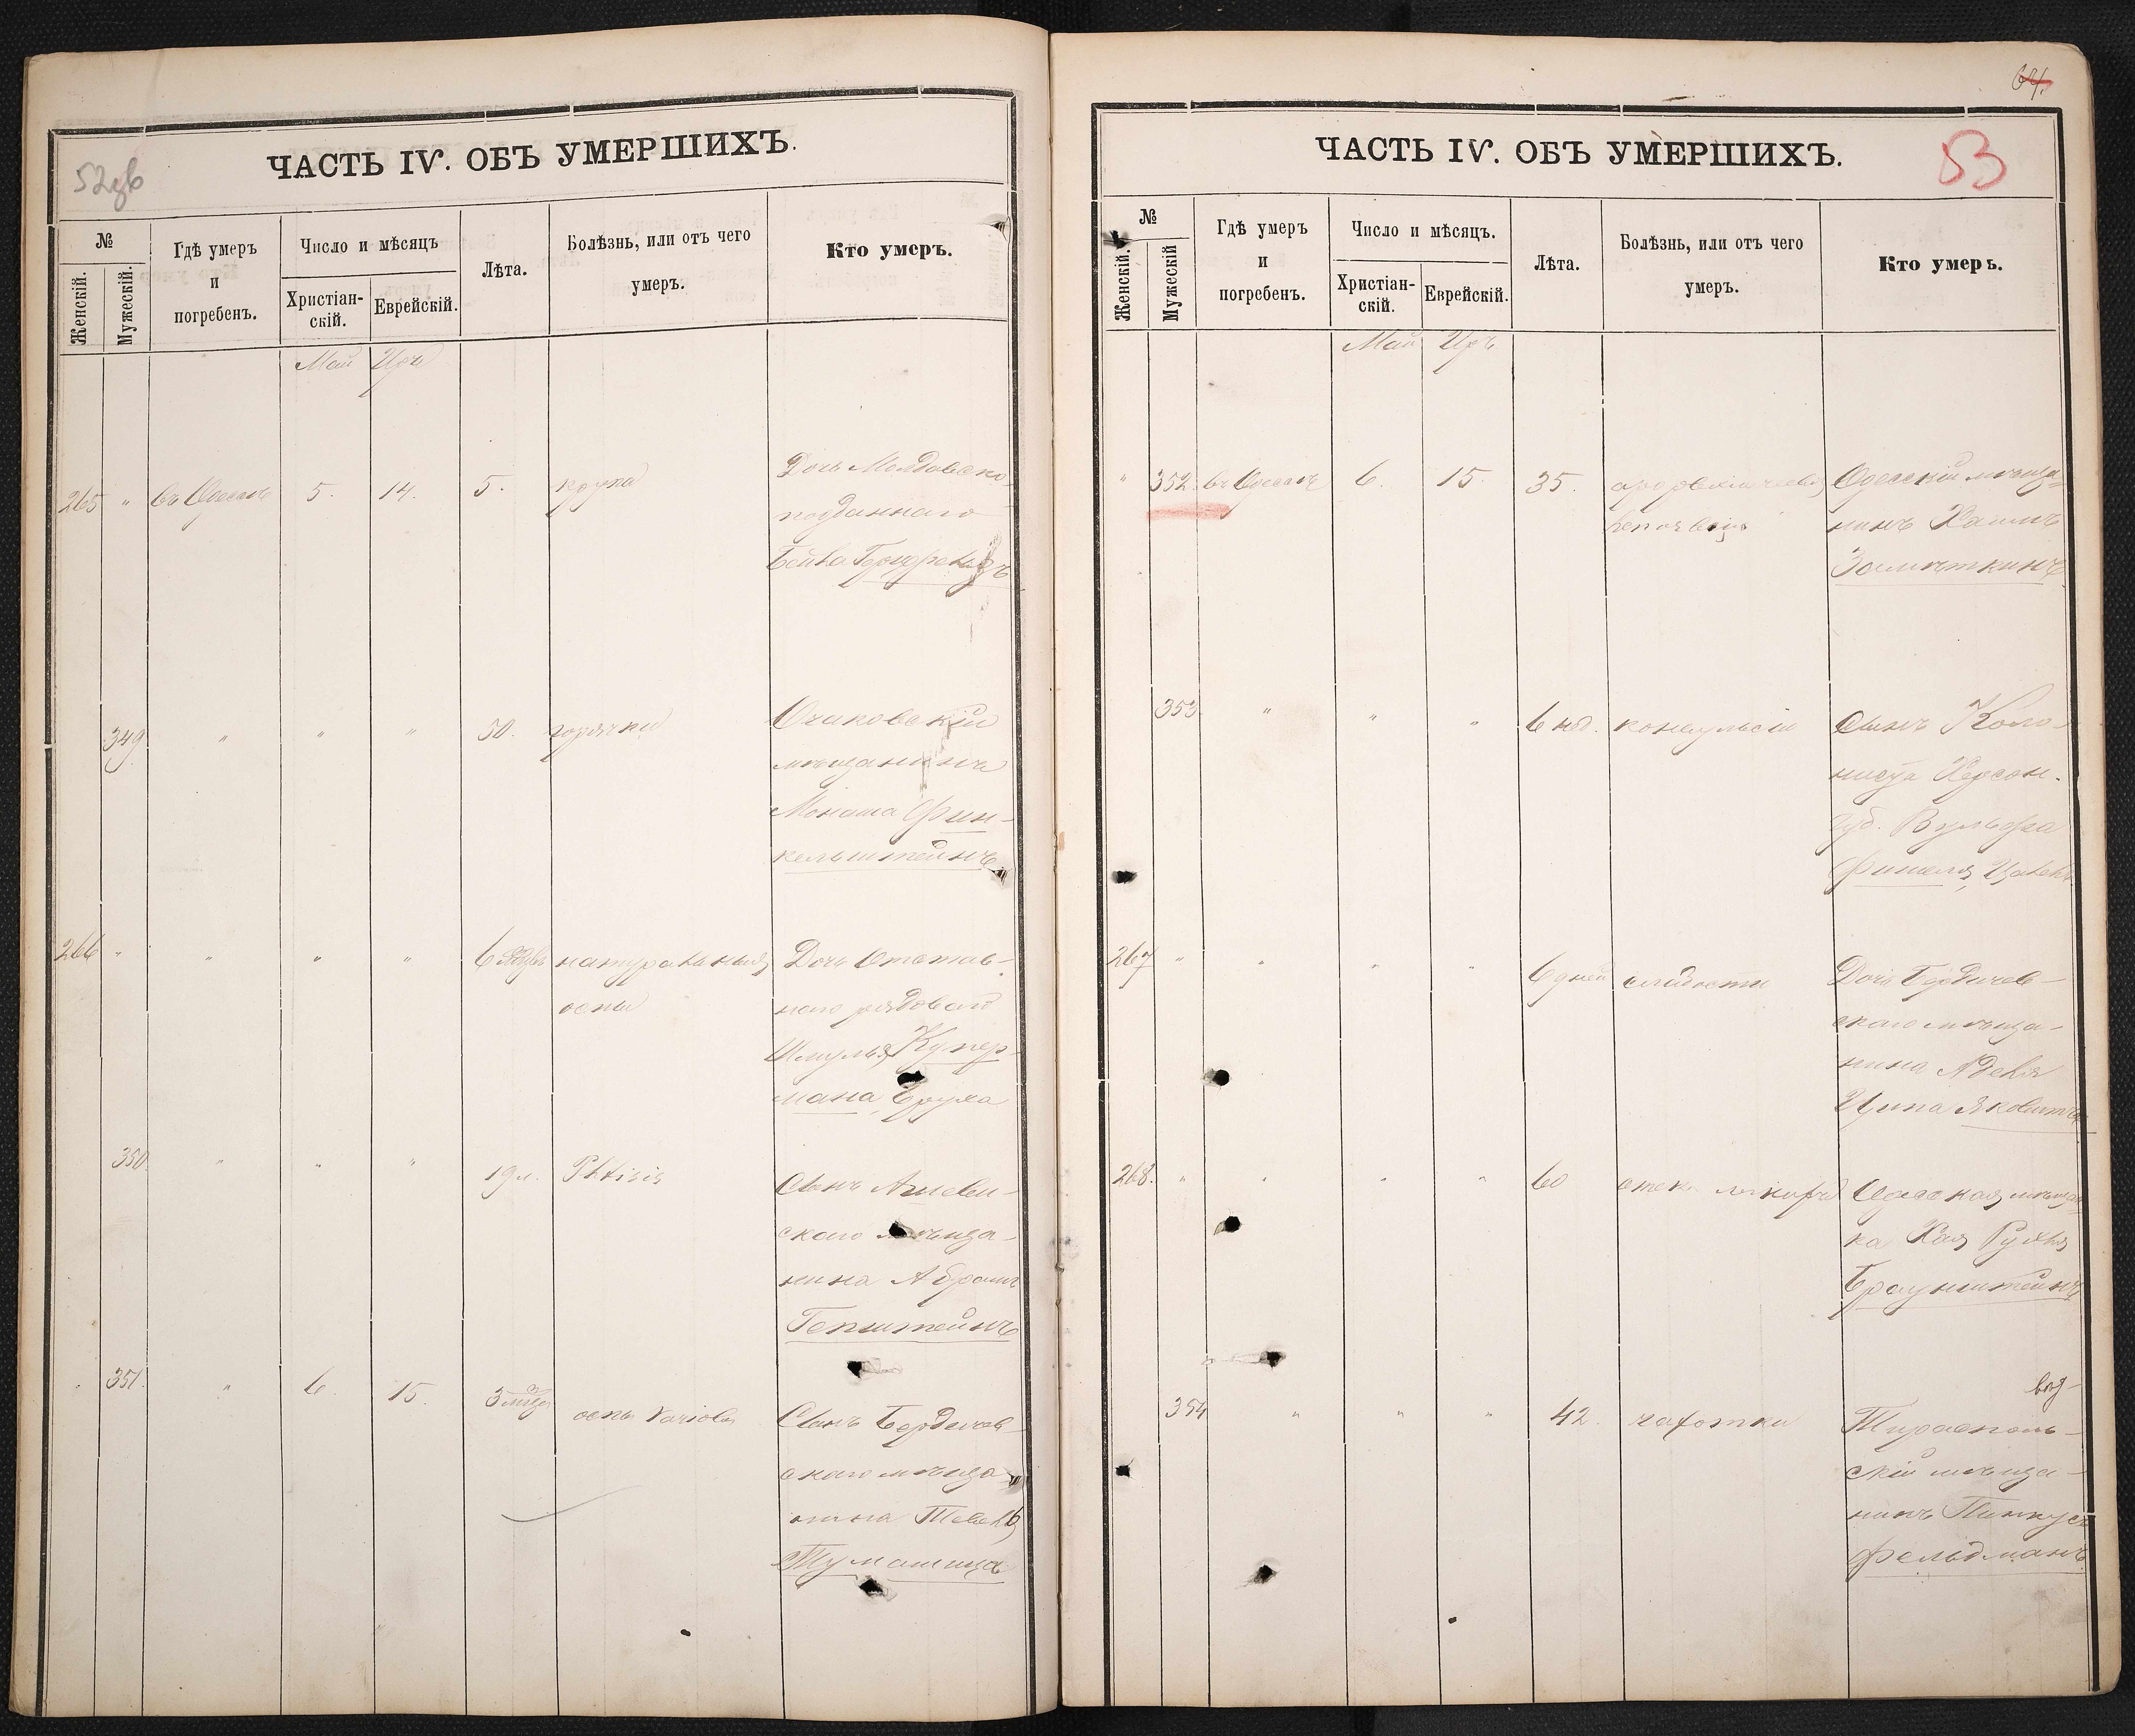 52зв
ЧАСТЬ IV. ОБЪ УМЕРШИХЪ.
№
Женскій.
Мужескій.
Гдѣ умеръ
и
погребенъ.
Число и мѣсяцъ
Христіан-
скій.
Еврейскій.
Лѣта.
Болѣзнь, или отъ чего
умеръ.
Кто умеръ.
Май Иръ
265 " въ Одессѣ 5. 14. 5. крупа Дочь Молдавско-
подданнаго
Бейла
349 " " " 50. горячки Очаковскій
мѣщанинъ
Монаша Фин-
кельштейнъ
266 " " " " 6 натуральная Дочь Отстав-
оспы наго рядоваго
Шмуля Купер-
мана, Бруха
350 " " " 19 л. Phtisis Сынъ
скаго мѣща-
нина Абрамъ
Гепштейнъ
351. " 6. 15. 3 оспы Variola Сынъ Бердичев-
скаго мѣща-
нина
64.
ЧАСТЬ IV. ОБЪ УМЕРШИХЪ.
53
№
Женскій.
Мужескій
Гдѣ умеръ
и
погребенъ.
Число и мѣсяцъ.
Христіан-
скій.
Еврейскій.
Лѣта.
Болѣзнь, или отъ чего
умеръ.
Кто умеръ.
Май Иръ
" 352. въ Одессѣ 6. 15. 35. Одесскій мѣща-
нинъ Хаимъ
Замѣткинъ
353 " " " 6 нед. конвульсіи Сынъ Коло-
ниста Херсон.
губ. Вульфа
Фишеля,
267 " " " " 6 дней слабости Дочь Бердичев-
скаго мѣща-
нина
Ципа Яковитъ
268. " " " " 60 Одесская мѣщан-
ка Хая Рухля
Браунштейнъ
354 " " " 42. чахотки Тирасполь-
скій мѣща-
нинъ Пинкусъ
Фельдманъ